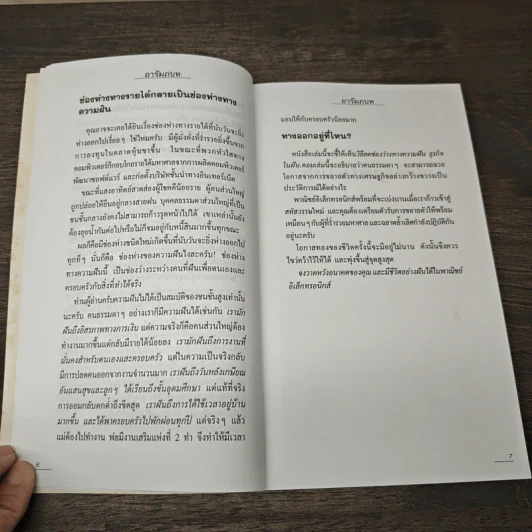 อารัมภบท
ช่องห่างทางรายได้กลายเป็นช่องห่างทาง
ความฝัน
คุณอาจจะเคยได้ยินเรื่องช่องห่างทางรายได้ที่นับวันจะยิ่ง
ห่างออกไปเรื่อยๆ ใช่ไหมครับ มีผู้มั่งคั่งที่ร่ำรวยยิ่งขึ้นจาก
การลงทุนในตลาดหุ้นขาขึ้น ในขณะที่พวกหัวใสทาง
คอมพิวเตอร์ก็กอบโกยรายได้มหาศาลจากการผลิตคอมพิวเตอร์
พัฒนาซอฟต์แวร์ และก่อตั้งบริษัทชั้นนำทางอินเทอร์เน็ต
ขณะที่แสงอาทิตย์สาดส่องผู้โชคดีน้อยราย ผู้คนส่วนใหญ่
ถูกปล่อยให้ยืนอยู่กลางสายฝน บุคคลธรรมดาส่วนใหญ่ที่เป็น
ชนชั้นกลางยังคงไม่สามารถก้าวรุดหน้าไปได้ เขาเหล่านั้นยัง
ต้องลุยน้ำกันต่อไปหรือไม่ก็จมอยู่กับหนี้สินมากขึ้นทุกขณะ
ผลก็คือมีช่องห่างชนิดใหม่เกิดขึ้นที่นับวันจะยิ่งห่างออกไป
ทุกที่ๆ นั่นก็คือ ช่องห่างของความฝันไงละครับ! ช่องห่าง
ทางความฝันนี้ เป็นช่องว่างระหว่างคนที่ฝันเพื่อตนเองและ
ครอบครัวกับสิ่งที่ทำได้จริง
ท่านผู้อ่านครับความฝันไม่ได้เป็นสมบัติของชนชั้นสูงเท่านั้น
นะครับ คนธรรมดาๆ อย่างเราก็มีความฝันได้เช่นกัน เรามัก
ฝันถึงอิสรภาพทางการเงิน แต่ความจริงก็คือคนส่วนใหญ่ต้อง
ทำงานมากขึ้นแต่กลับมีรายได้น้อยลง เรามักฝันถึงการงานที่
มั่นคงสำหรับตนเองและครอบครัว แต่ในความเป็นจริงกลับ
มีการปลดคนออกจากงานจำนวนมาก เราฝันถึงวันหลังเกษียณ
อันแสนสุขและลูกๆ ได้เรียนถึงชั้นอุดมศึกษา แต่แท้ที่จริง
การออมกลับตกต่ำถึงขีดสุด เราฝันถึงการได้ใช้เวลาอยู่บ้าน
มากขึ้น และได้พาครอบครัวไปพักผ่อนทุกปี แต่จริงๆ แล้ว
แม่ต้องไปทำงาน พ่อมีงานเสริมแห่งที่ 2 ทำ จึงทำให้มีเวลา
6
อารัมภบท
มอบให้กับครอบครัวน้อยมาก
ทางออกอยู่ที่ไหน?
หนังสือเล่มนี้จะชี้ให้เห็นวิธีลดช่องว่างทางความฝัน ธุรกิจ
ในฝัน.คอมเล่มนี้จะอธิบายว่าคนธรรมดาๆ จะสามารถฉวย
โอกาสจากการขยายตัวทางเศรษฐกิจอย่างกว้างขวางเป็น
ประวัติการณ์ได้อย่างไร
พาณิชย์อิเล็กทรอนิกส์พร้อมที่จะเบ่งบานเมื่อเราก้าวเข้าสู่
สหัสวรรษใหม่ และคุณต้องเตรียมตัวรับการขยายตัวให้พร้อม
เหมือนๆ กับผู้ที่ร่ำรวยมหาศาล และฉลาดล้ำเลิศกำลังปฏิบัติกัน
อยู่นะครับ
โอกาสทองของชีวิตครั้งนี้จะมีอยู่ไม่นาน ดังนั้นจึงควร
ไขว่คว้าไว้ให้ได้ และพุ่งขึ้นสู่จุดสูงสุด
จงวาดหวังอนาคตของคุณ และมีชีวิตอย่างฝันได้ในพาณิชย์
อิเล็กทรอนิกส์
7